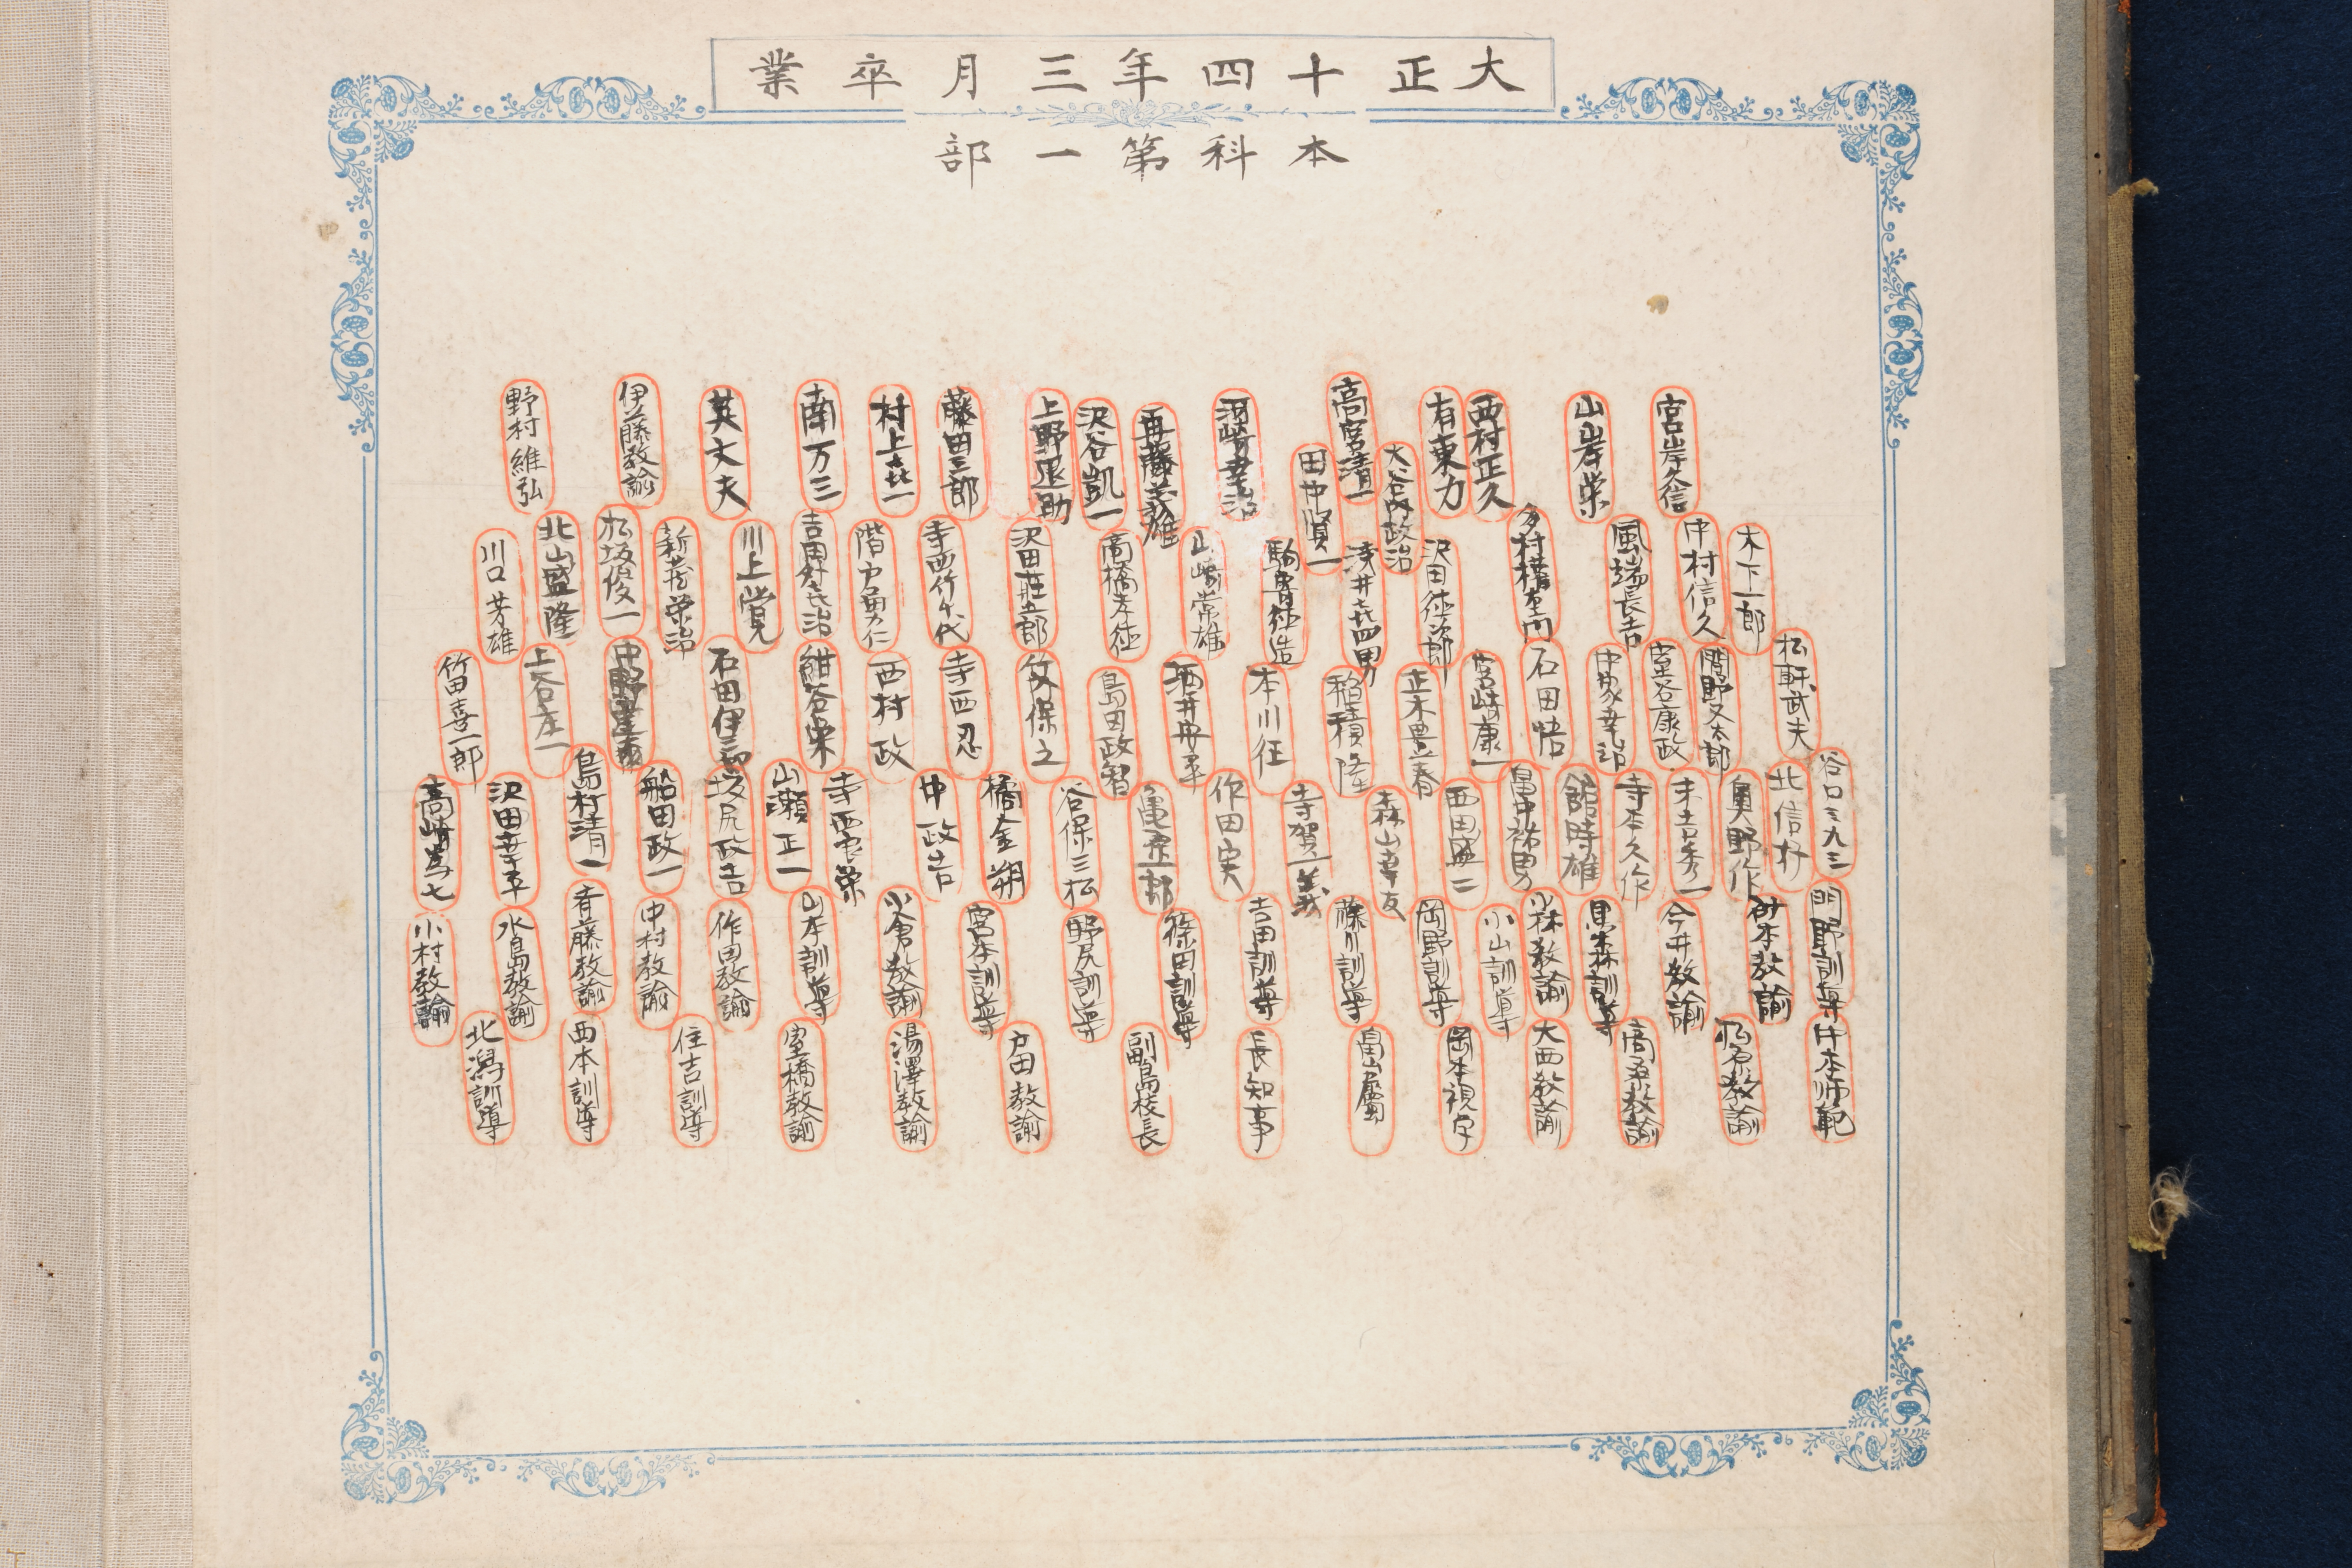 大正十四年三月卒業
本科第一部
宮岸久信
山岸栄
西村正久
有東力
高宮清一
河崎幸治
沢谷凱一
上野退助
藤田三郎
村上喜一
南万三
英丈夫
伊藤教諭
野村維弘
大谷内政治
田中賢一
木下一郎
中村信久
風端長吉
沢田徳次郎
浅井喜四男
山崎常雄
高橋孝徳
沢田荘五郎
寺西竹千代
階戸勇仁
川上覚
松坂俊一
北山盛隆
川口芳雄
松軒武夫
間野又太郎
室谷康政
中家幸治
石田悟
宮崎康一
正木豊春
稲積隆
本川征
酒井安平
島田政智
竹久保之
寺西忍
西村政
紺谷栄
石田伊三郎
上谷庄一
竹田喜一郎
谷口三九三
北信好
奥野作
末吉秀一
寺本久作
舘時雄
畠中祐男
西田盛二
森山幸友
寺賀義
作田実
谷保三松
橘金朔
中政吉
寺西衣栄
山瀬正一
坂尻政吉
船田政一
島村清一
沢田幸平
高崎為七
門野訓導
今井教諭
黒森訓導
小林教諭
小山訓導
岡野訓導
藤川訓導
吉田訓導
篠田訓導
野尻訓導
宮本訓導
小倉教諭
山本訓導
作田教諭
中村教諭
斉藤教諭
水島教諭
小村教諭
井本師範
松原教諭
高桑教諭
大西教諭
岡本視学
畠山属
長知事
副島校長
戸田教諭
湯澤教諭
室橋教諭
住吉訓導
西本訓導
北潟訓導